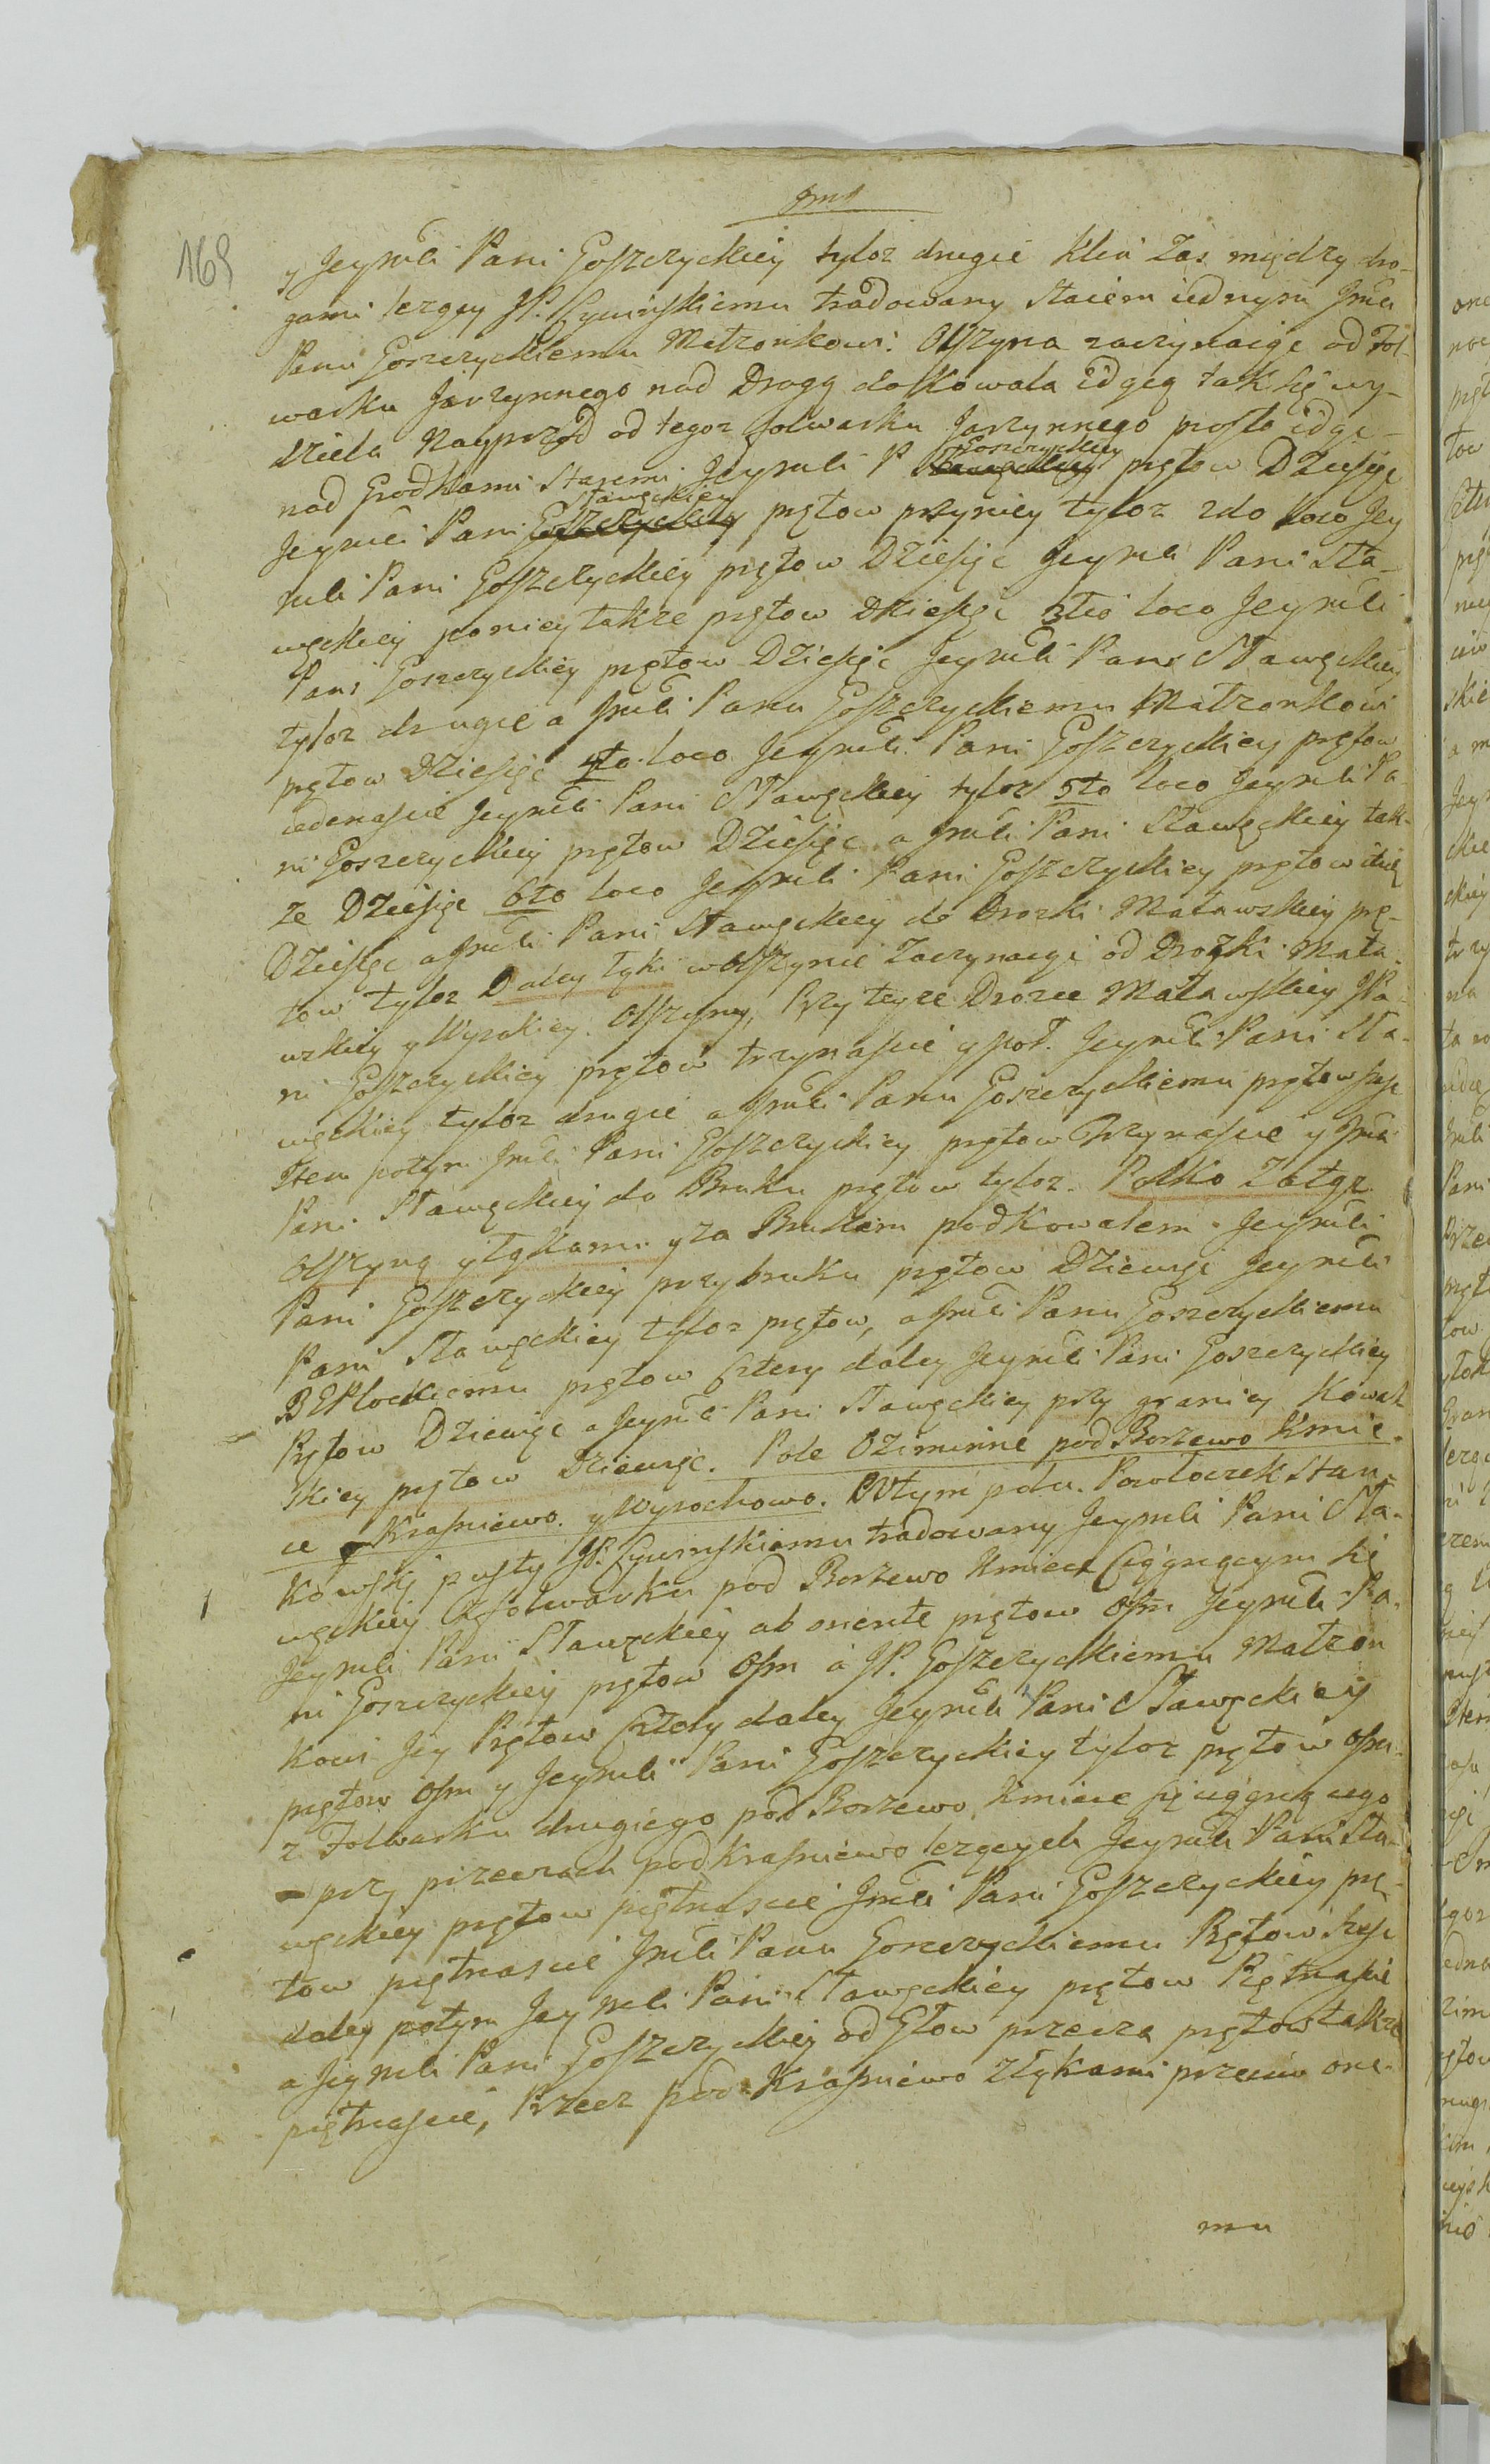 169
y Jeymci Pani Goszczyckiey tyloz drugie klin Zas między dro-
gami lezący JP. Cywinskiemu tradowany staiem iednym Jmci
Panu Goszczyckiemu Małzonkowi. Olszyna zaczynaiąc od Fol-
warku Jarzynnego nad Drogą do Kowala idącą tak się wy-
dziela Nayprzod od tegoz folwarku Jarzynnego prosto idąc
nad Grodkami Staremi Jeymci P Goszczyckiey prętow Dziesięc
Jeymci Pani Sławęckiey Goszczyckiey prętow przyniey tyloz 2do loco Jey
mci Pani Goszczyckiey prętow Dziesięc Jeymci Pani Sła-
węckiey poniey takze prętow Dziesięc 3tio loco Jeymci
Pani Goszczyckiey prętow Dziesięc Jeymci Pani Sławęckiey
tyloz drugie a Jmci Panu Goszczyckiemu Małzonkowi
prętow Dziesięc 4to loco Jeymci Pani Goszczyckiey prętow
iedenascie Jeymci Pani Sławęckiey tyloz 5to loco Jeymci Pa-
ni Goszczyckiey prętow Dziesięc a Jmci Pani Sławęckiey tak-
ze Dziesięc 6to loco Jeymci Pani Goszczyckiey prętow
Dziesięc a Jmci Pani Sławęckiey do Drozki Matawskiey prę-
tow tyloz Daley Łąki w Olszynie Zaczynaiąc od Drozki Mata-
wskiey y Wysokiey Olszyny, Przy teyze Drozce Matawskiey JPa-
ni Goszczyckiey prętow trzynascie y puł. Jeymci Pani Sła-
węckiey tyloz drugie a Jmci Panu Goszczyckiemu prętow szesc
Item potym Jmci Pani Goszczyckiey prętow Trzynascie y Jmci
Pani Sławęckiey do Bruku prętow tyloz. Polko Zatąz
Olszyną y Łąkami y za Brukiem pod Kowalem. Jeymci
Pani Goszczyckiey przy bruku prętow Dziewięc Jeymci
Pani Sławęckiey tyloz prętow, a Jmci Panu Goszczyckiemu
BEPłockiemu prętow Cztery daley Jeymci Pani Goszczyckiey
Prętow Dziewięc a Jeymci Pani Sławęckiey przy granicy Kowal
skiey prętow Dziewięc. Pole Oziminne pod Borzewo Kmie-
ce Krasniewo. y Wysochowo. Wtym polu. Powłoczek Stan-
kowski pusty JP. Cywinskiemu tradowany Jeymci Pani Sła-
węckiey Z folwarku pod Borzewo Kmiece Ciągnącym się
Jeymci Pani Sławęckiey ab oriente prętow Osm Jeymci Pa-
ni Goszczyckiey prętow Osm a JP. Goszczyckiemu Małzon
kowi Jey Prętow Cztery daley Jeymci Pani Sławęckiey
prętow Osm y Jeymci Pani Goszczyckiey tyloz prętow osm
z Folwarku drugiego pod Borzewo Kmiece się ciągnącego
przy przeczach pod Krasniewo lezących Jeymci Pani Sła-
węckiey prętow piętnascie Jmci Pani Goszczyckiey prę-
tow piętnascie Jmci Panu Goszczyckiemu Prętow szesc
daley potym Jeymci Pani Sławęckiey prętow Piętnascie
a Jeymci Pani Goszczyckiey od Głow przecza prętow takze
piętnascie, Przecz pod Krasniewo złąkami przeciw one-
mu